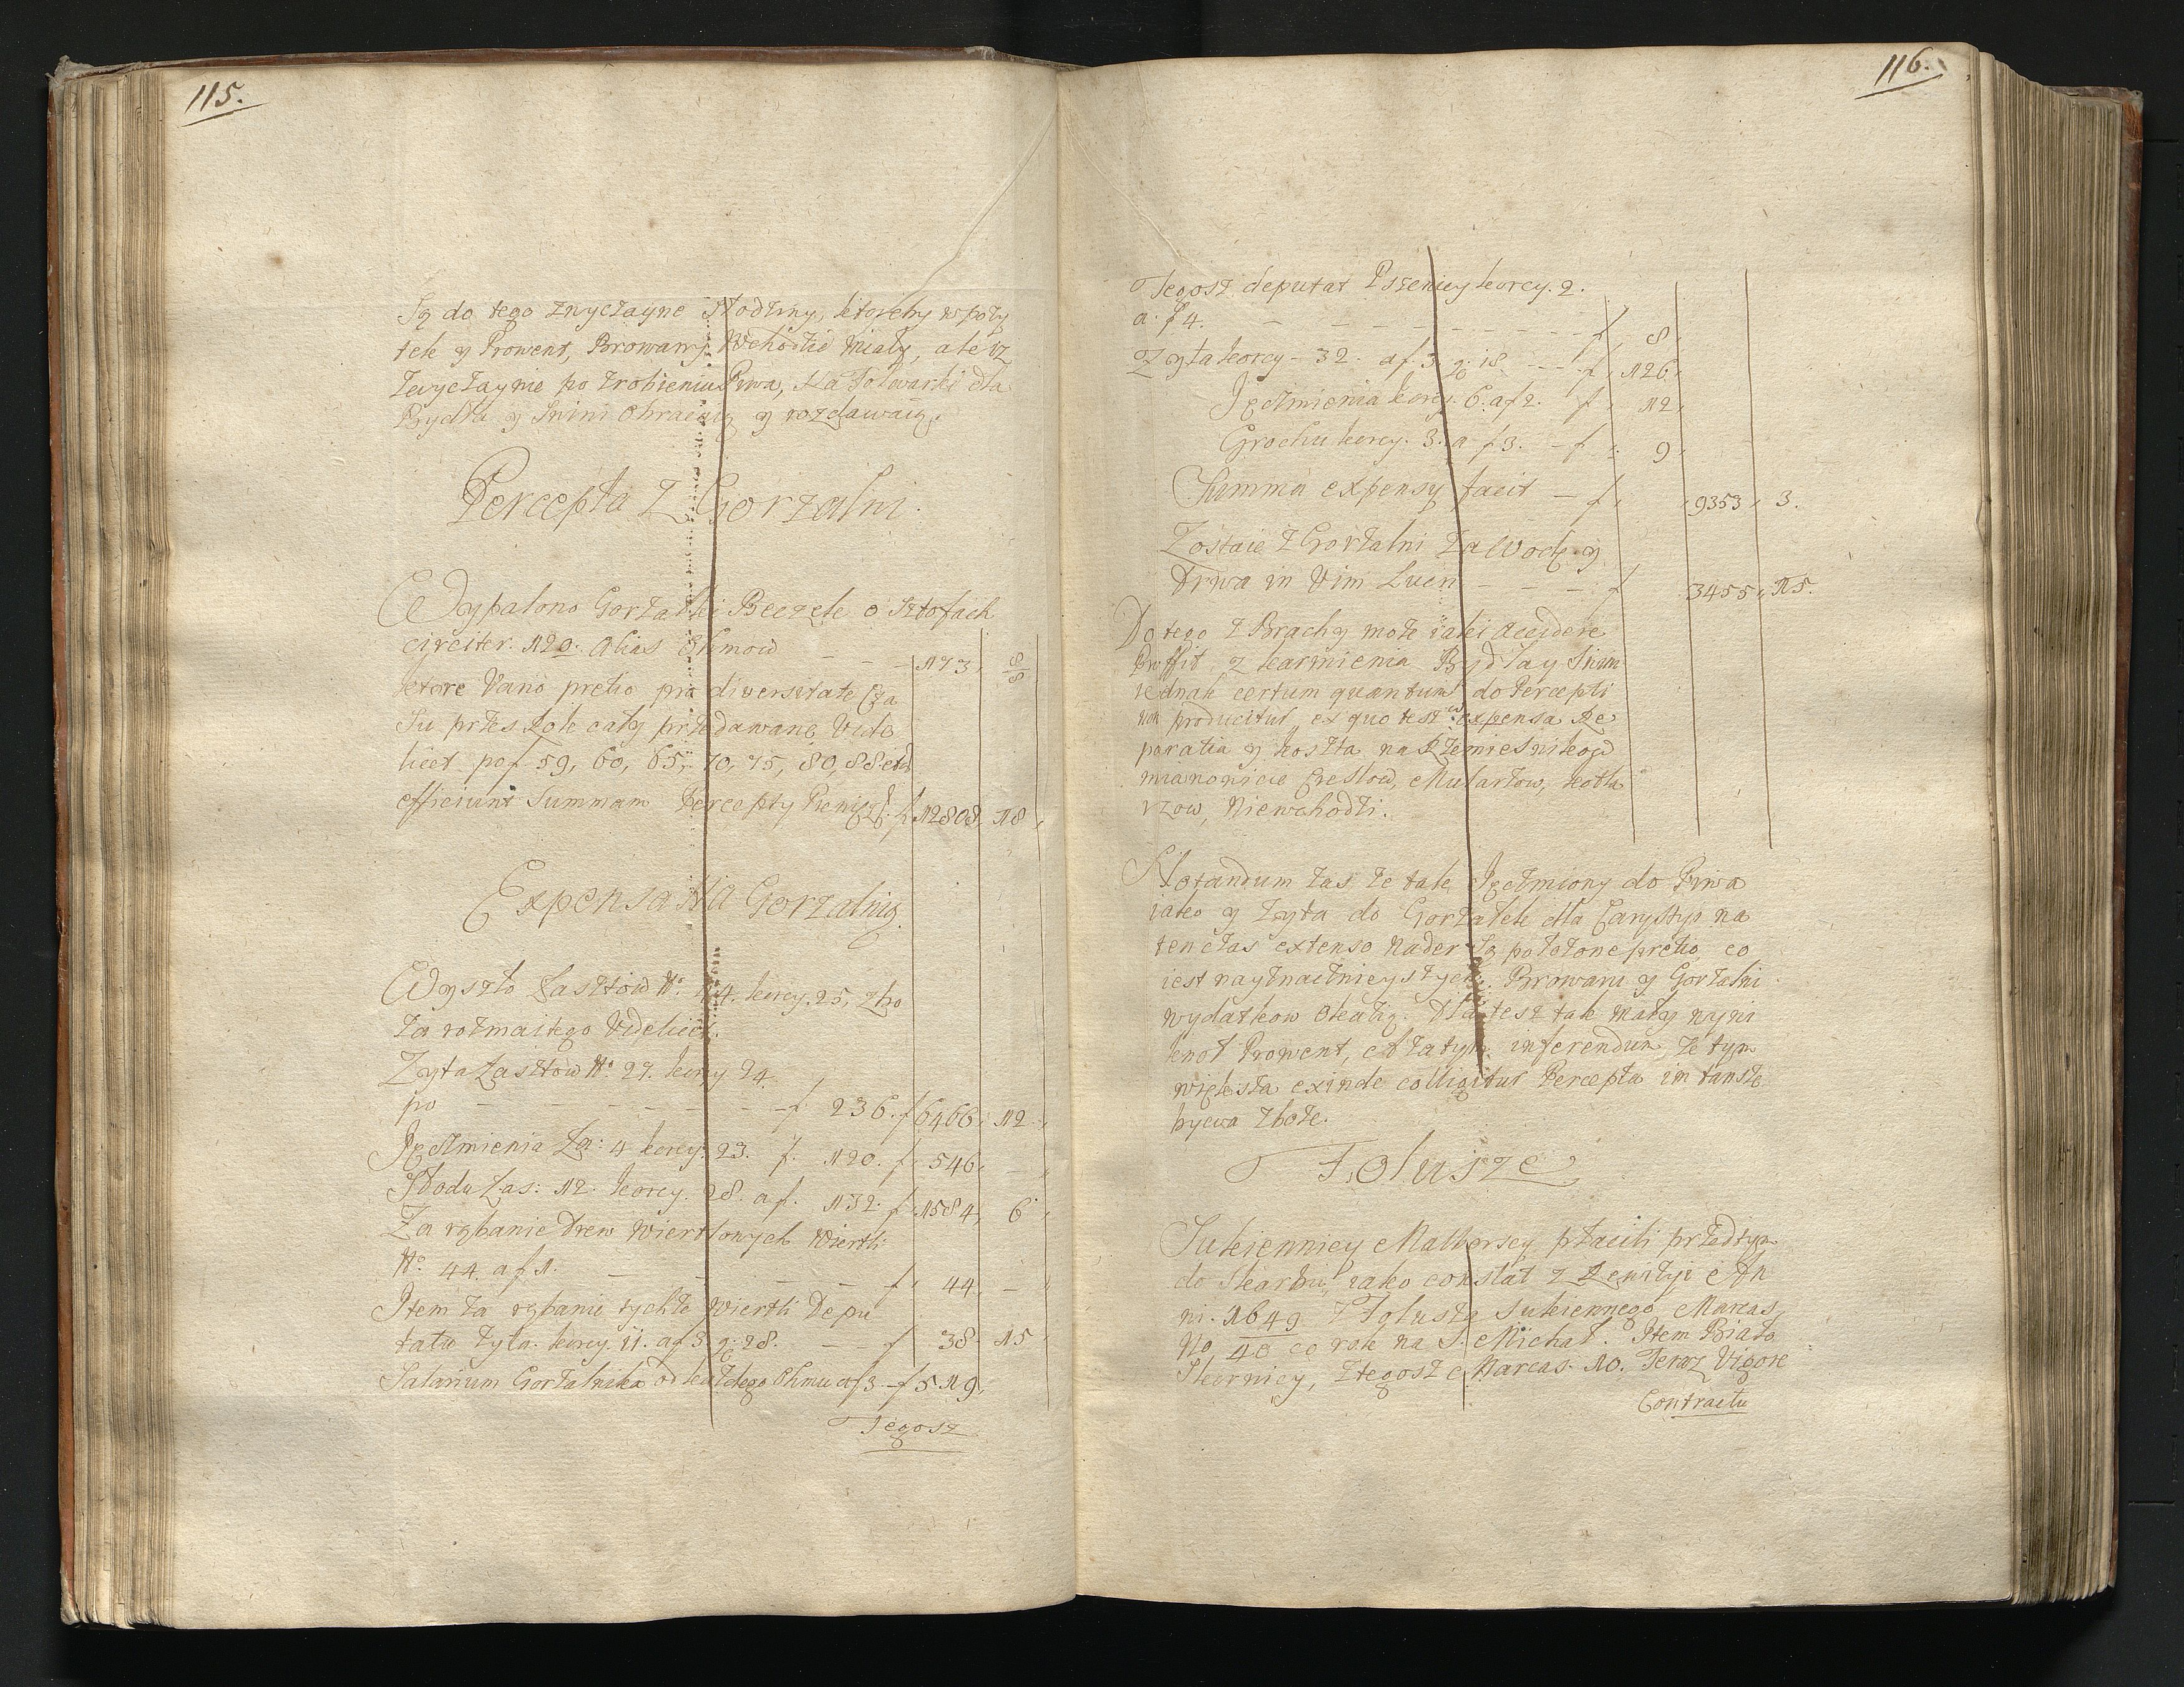 115.
Są do tego zwyczayne Słodziny, ktoreby w poży
tek y Prowent, Browarny Wchodzić miały, ale iz
zwyczaynie po zrobieniu Piwa, Na Folwarki dla
Bydła y Swini obracaią y rozdawaią.
Percepta Z Gorzalni.
Wypalono Gorzałki Beczek o Sztofach
circiter. 120. Alias Ohmow - - - 173,
ktore Vario pretio pro diversitate Cza
su przes Rok cały przedawane Vide
licet po f 59, 60, 65, 70, 75, 80, 88 etc
efficiunt Summam Percepty Pienięż. f 12808, 18,
Expensa Na Gorzalnią.
Wyszło Łasztow No. 44. korcy. 25, Zbo
za rozmaitego Videlicet.
Zyta Łasztow No. 27. korcy 24.
po - - - - - - - f. 236. f 6466, 12.
Jęczmienia Ła: 4 korcy. 23. f. 120. f. 546, -
Słodu Łas: 12. korcy. 28. a f. 132. f. 1584, 6
Za rąbanie Drew Wiertlowych Wiertli
No. 44. a f 1. - - - - f. 44. -
Item za rąbanie tychże Wiertli Depu
tatu Zyta. korcy. 11. a f 3 g: 28. - - f 38 15
Salarium Gorzalnika od każdego Ohmu a f 3 - f 519,
Tegosz
116.
Tegosz deputat Pszenicy korcy. 2.
a. f 4. - - - - - - - - f, 8,
Zyta korcy - 32. a f. 3 g: 18. - - - f, 126,
Jęczmienia korcy. 6. a f 2. f, 12,
Grochu korcy. 3. a f 3. - f, 9,
Summa expensy facit - f, 9353, 3.
Zostaie z Gorzalni za Wodę y
Drwa in Vim Lucri - - - f 3455, 15.
Do tego z Brachy może iaki accedere
Proffit z karmienia Bydła y Swin
iednak certum quantum do Percepti
non producitur, ex quo tesz expensa Re
paratia y koszta na Rzemiesnikow
mianowicie Ciesłow, Mularzow, kotla
rzow, Niewchodzi.
Notandum zas ze tak Jęczmiony do Piwa
iako y Zyta do Gorzałek dla Carystyi na
ten czas extenso nader są położone pretio, co
iest nayznacznieyszych Browaru y Gorzalni
wydatkow okazią. Dla tesz tak mały wyni
knoł Prowent, et za tym inferendum, ze tym
większa exinde colligitur Percepta im tansze
bywa zboze.
Folusze
Sukiennicy Malborscy płacili przed tym
do Skarbu, iako constat z Rewizyi An
ni. 1649 z Folusza Sukiennego Marcas
No 40 co rok na S. Michał. Item Biało
Skurnicy, z tegosz Marcas. 10. Teraz Vigore
Contractu